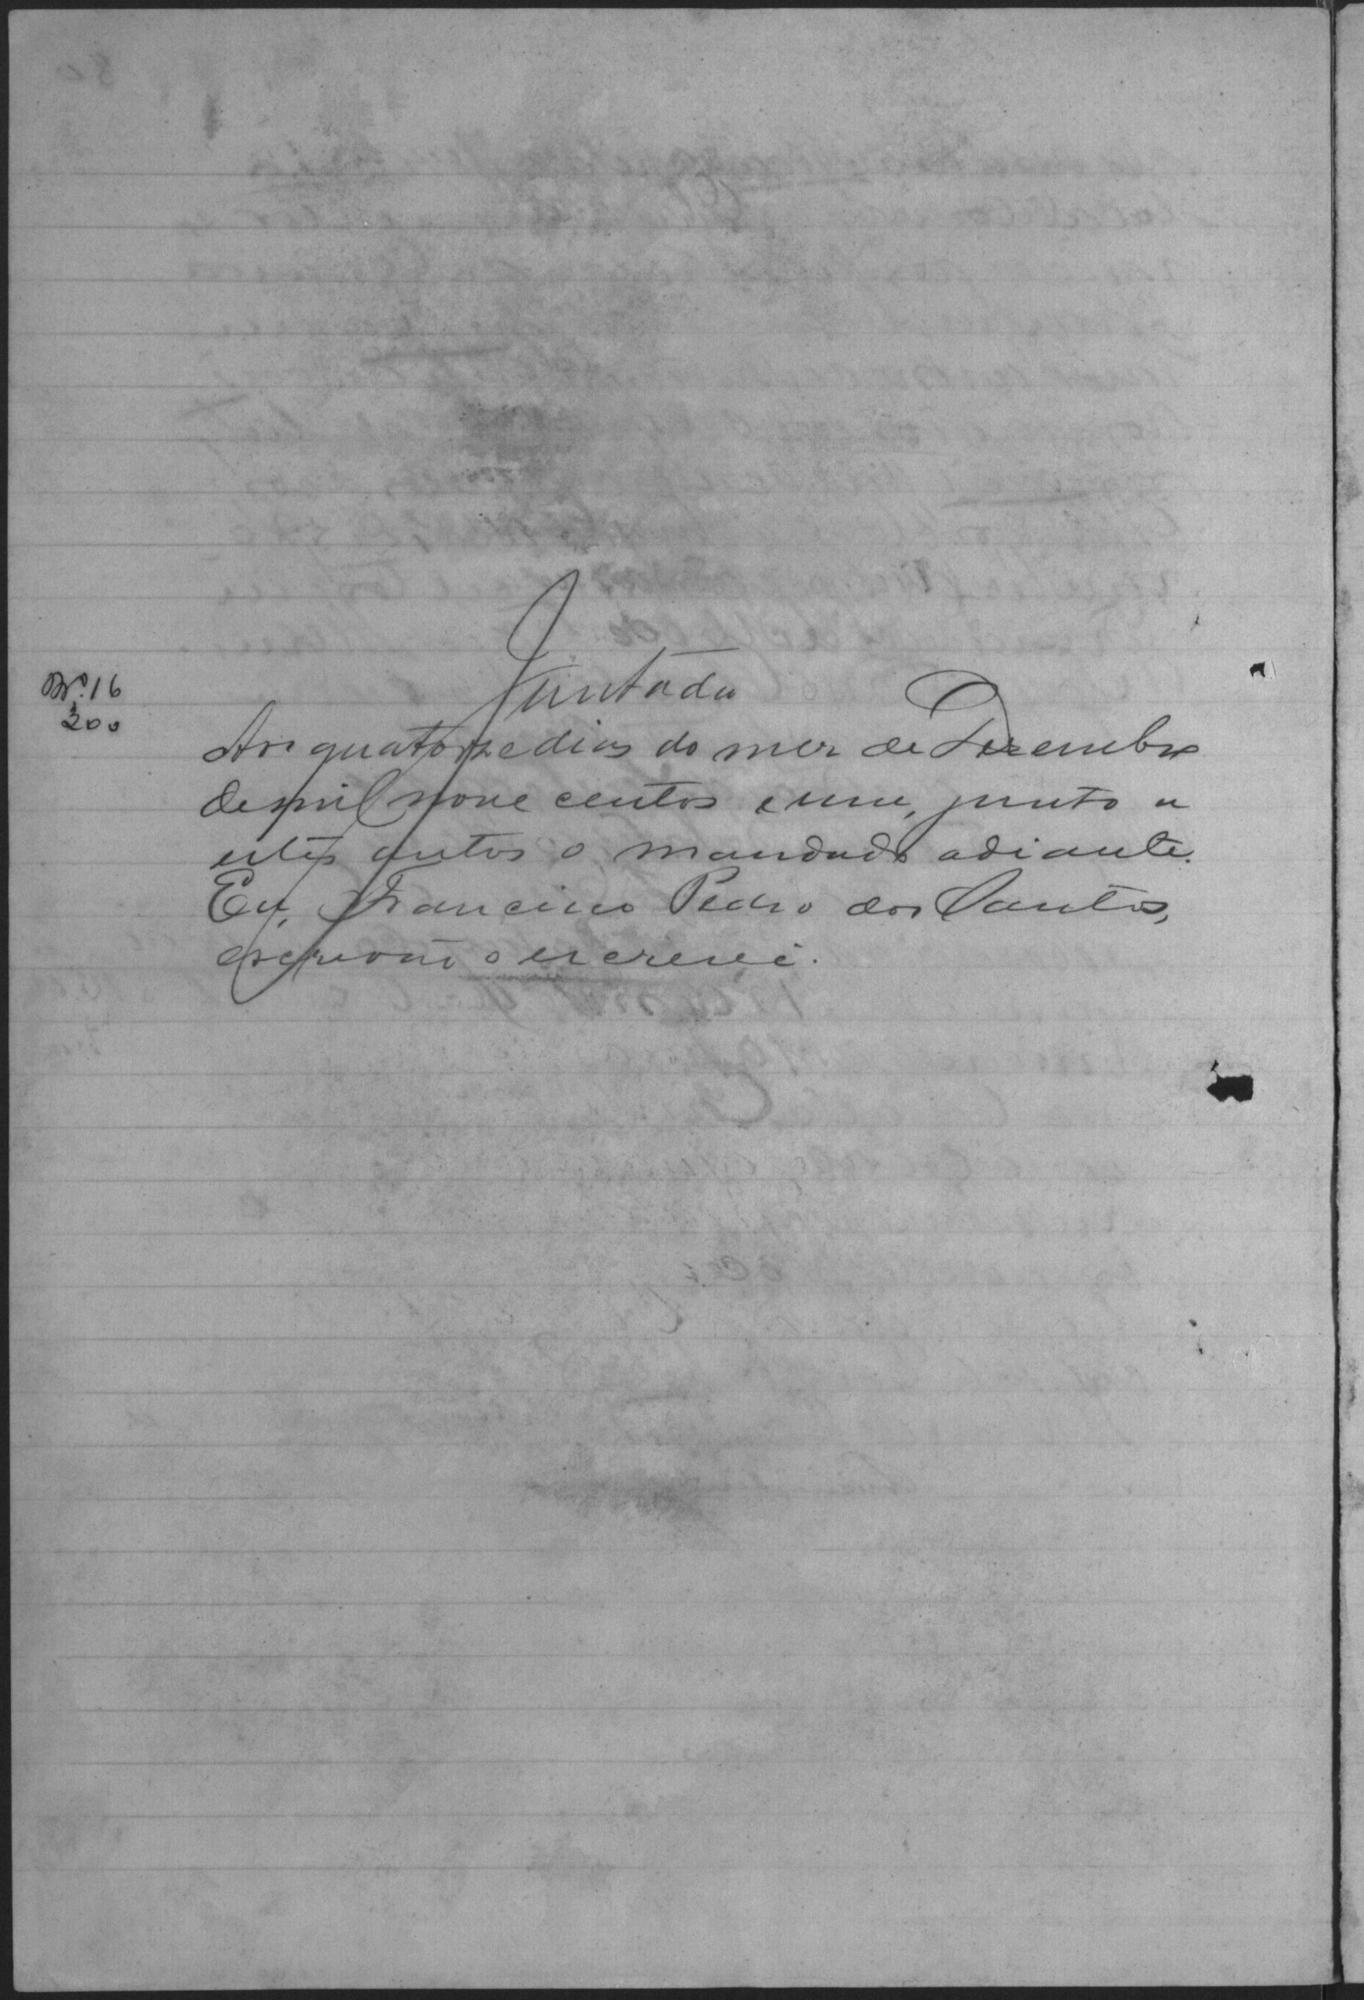 Nº. 16
200
Juntada
Aos quatorze dias do mez de Dezembro
de mil nove centos e um, junto a
estes autos o mandado adiante.
Eu, Francisco Pedro dos Santos,
escrivão o escrevi.